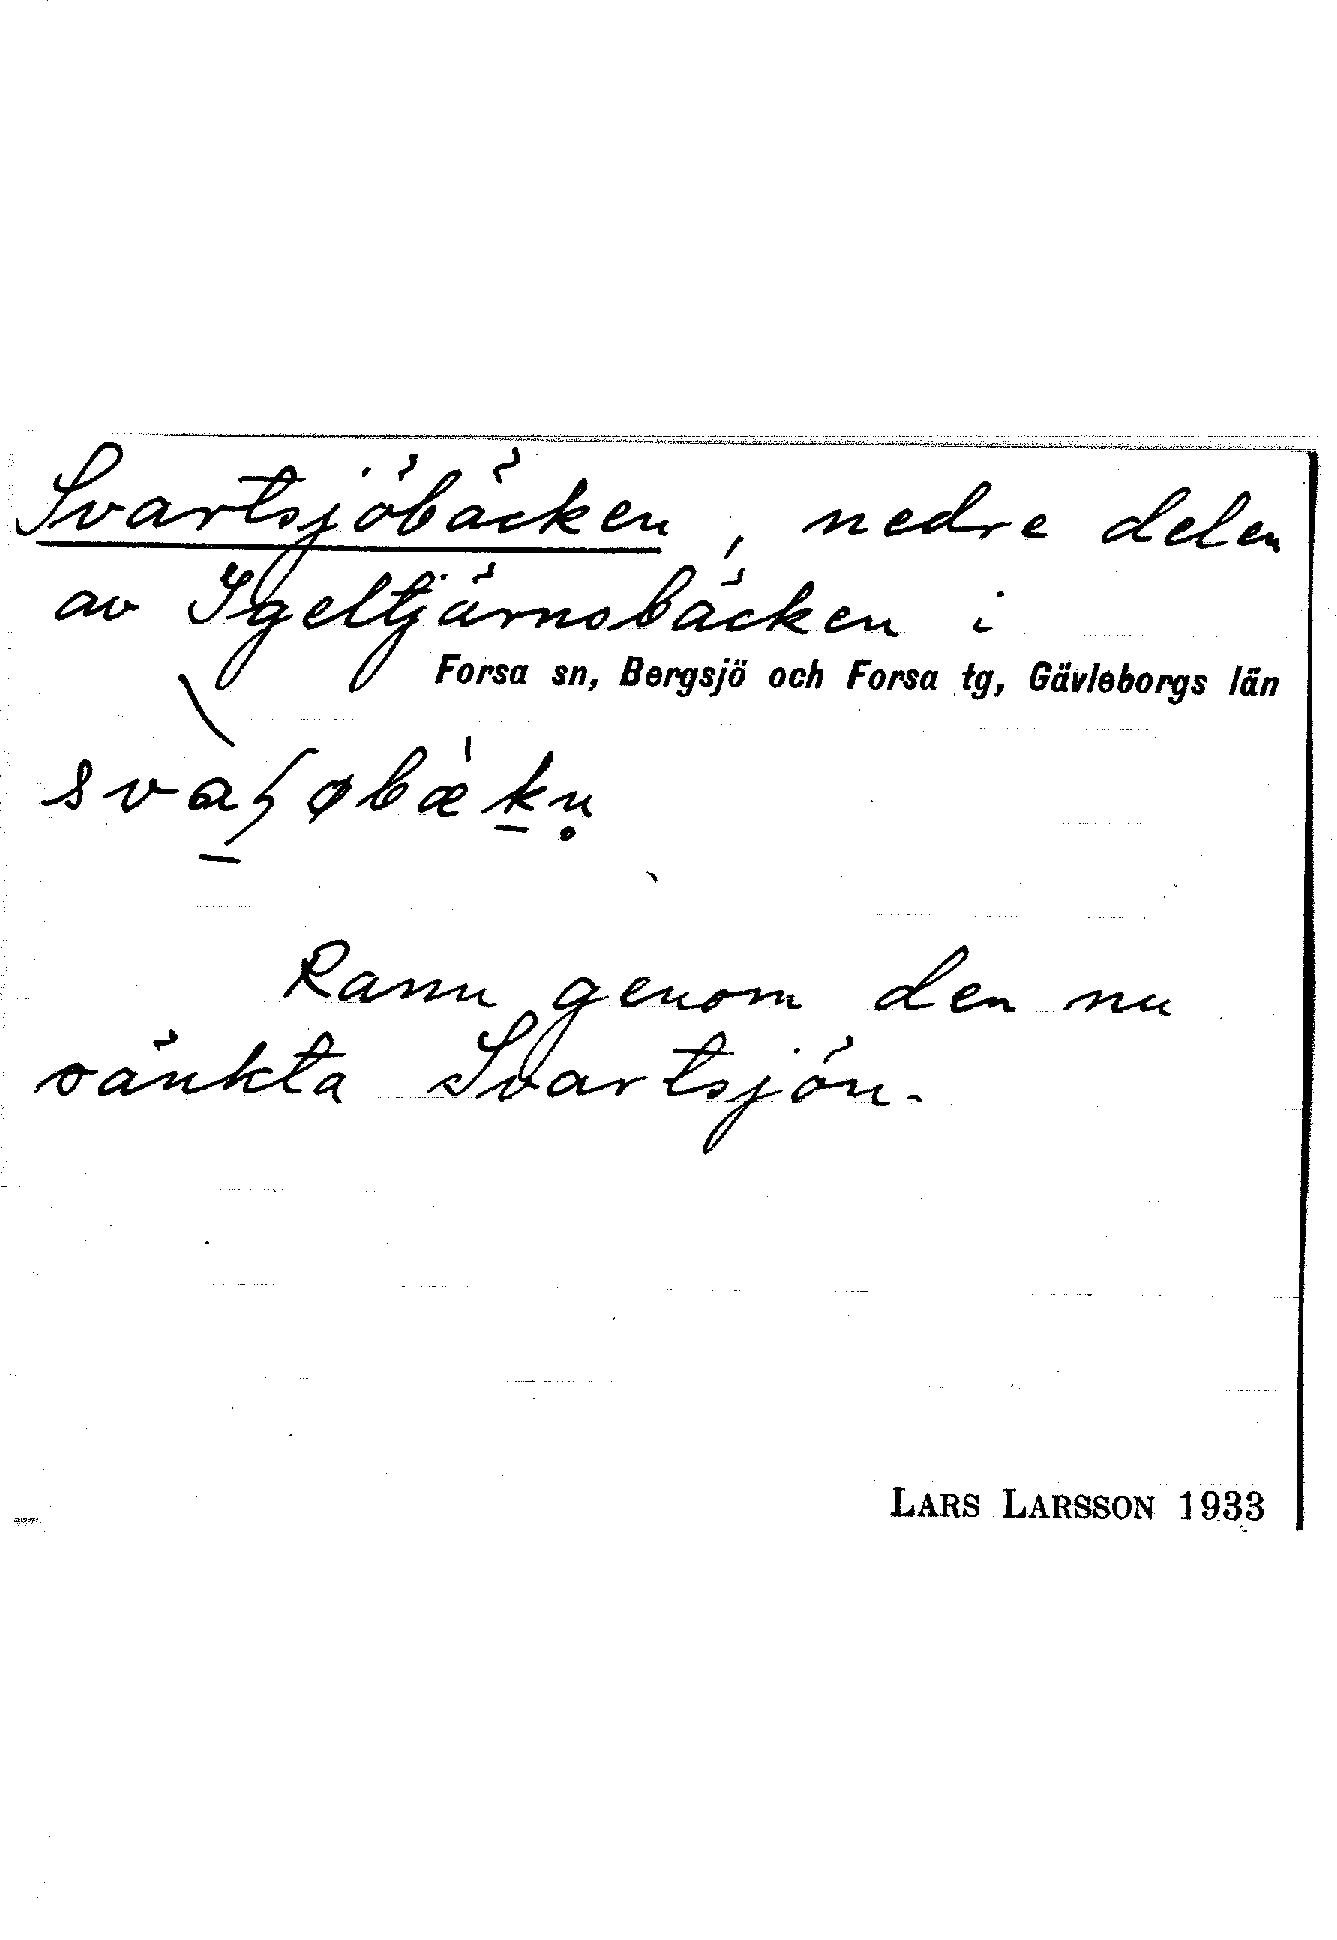 Svartsjöbäcken, nedre delen
av Igeltjärnsbäcken i
Forsa sn, Bergsjö och Forsa tg, Gävleborgs län
Rann genom den nu
sänkta Svartsjön.
LARS LARSSON 1933